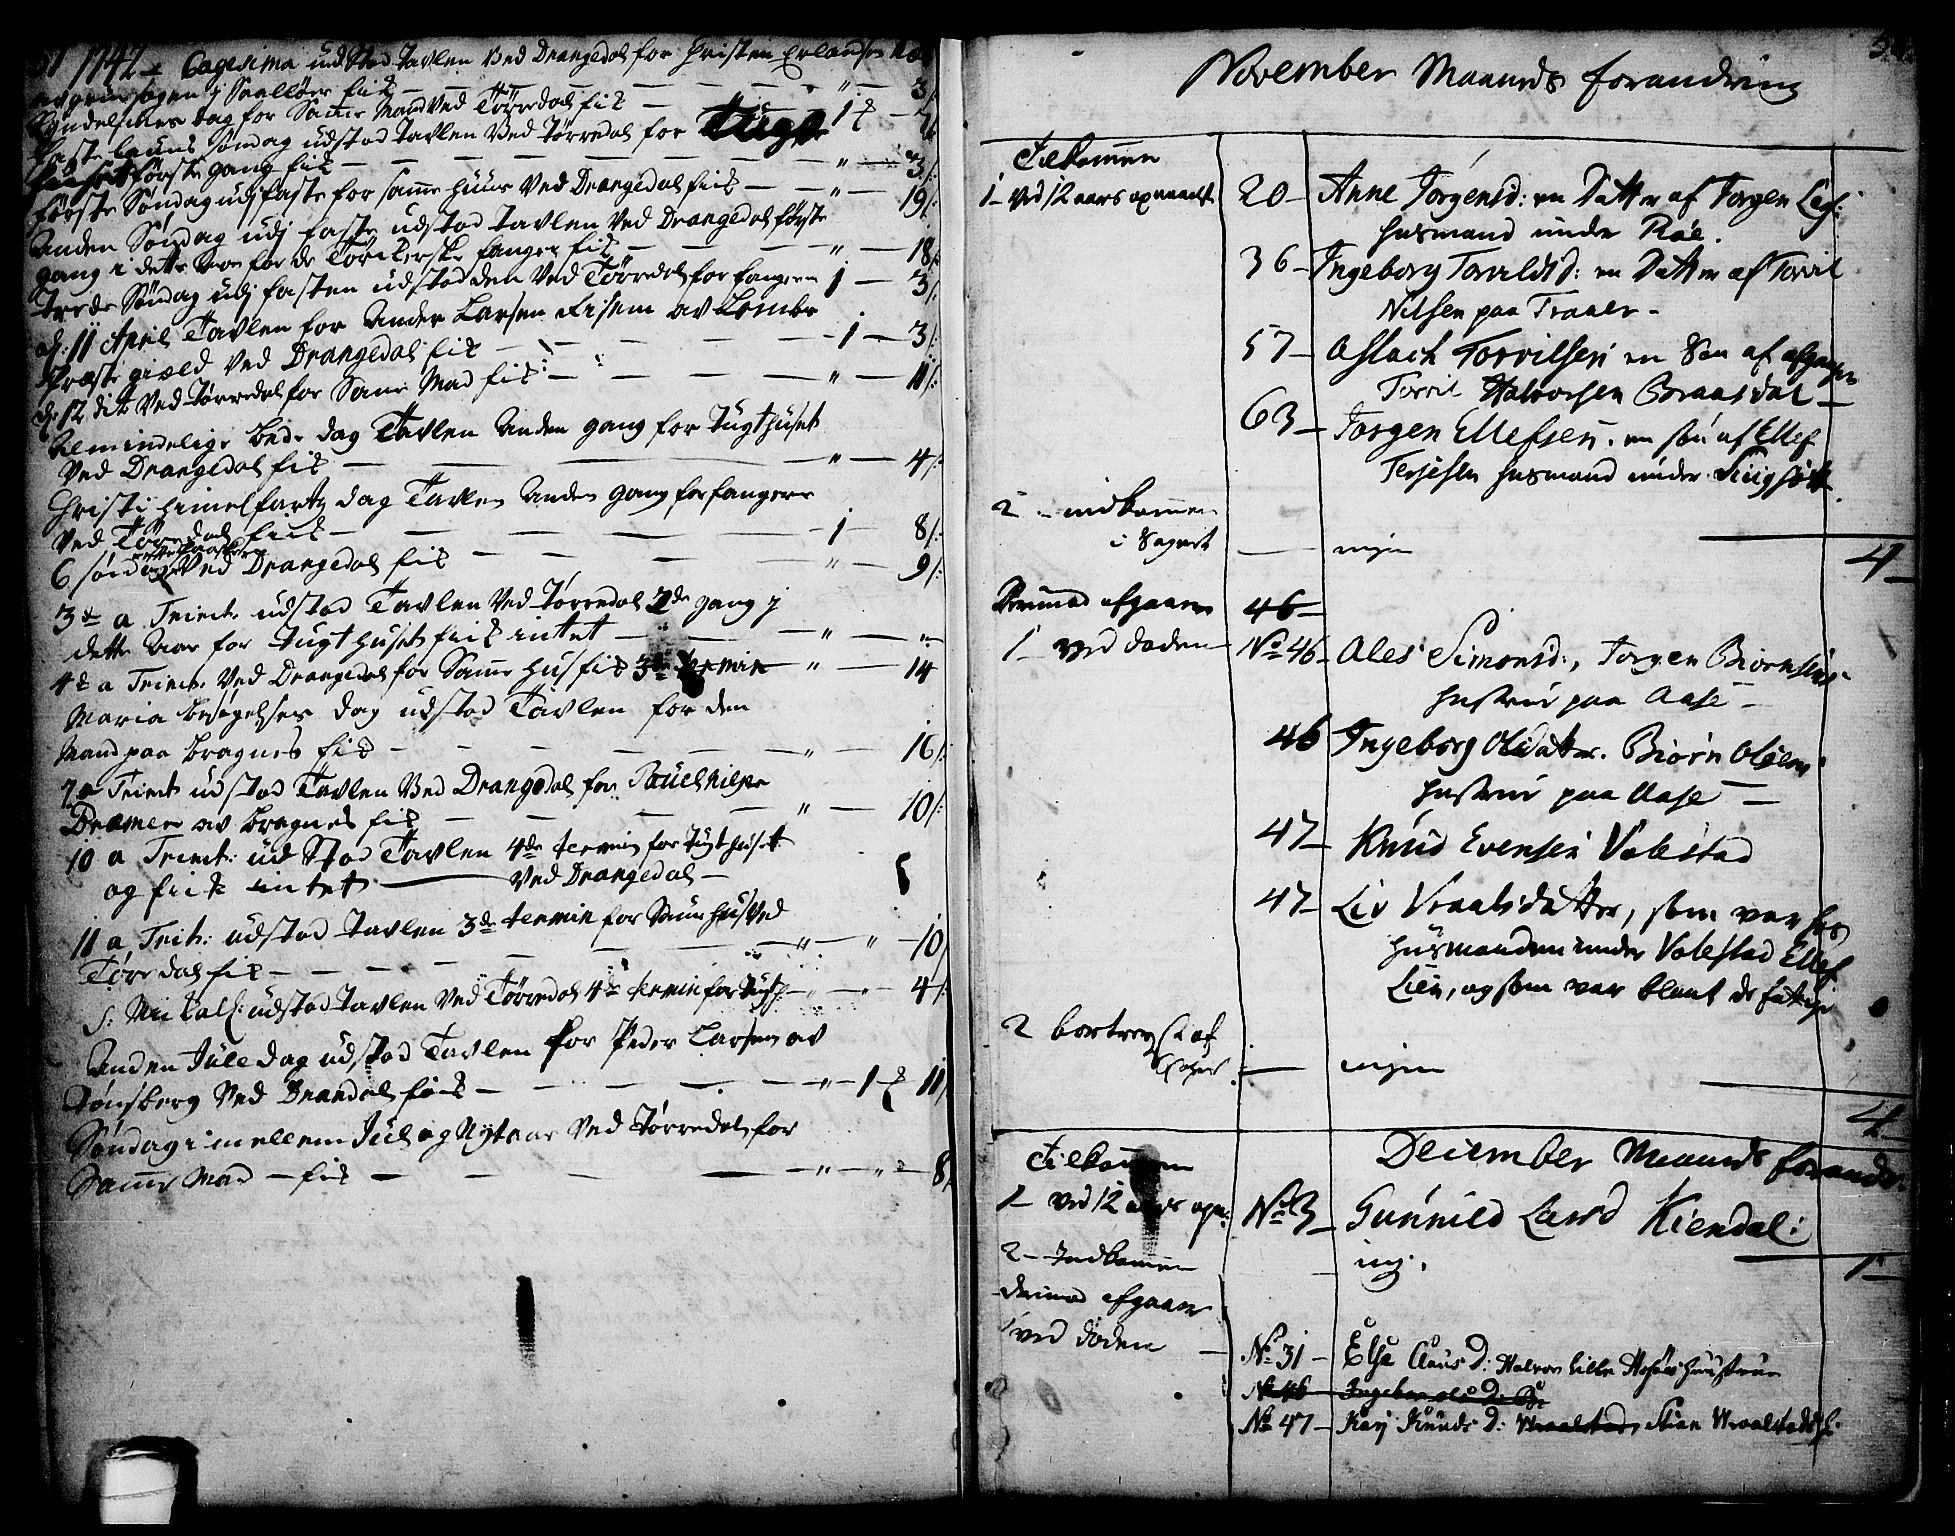 51 1742 Cagesima udstod Tavlen Ved Drangedal for Christen Erlandsen
fik — — — " — 3/:
Kyndelsmes dag for Samme Mand ved Tørredal fik — 1
Fastelauns Søndag udstod Tavlen Ved Tørredal for Tugt
huset første gang fik — — — " — 3/:
første Søndag udj faste for samme huus Ved Drangedal fik — " — 19/:
Anden Søndag udj faste udstod Tavlen Ved Drangedal første
gang i dette Aar for de Tyrkerske fanger fik — " — 18/:
Tredie Søndag udj fasten udstod den Ved Tørredal for fangerne 1 — 3/:
d: 11 April Tavlen for Ander Larsen Eisem av Lombe
Præste gield Ved Drangedal fik — — — 1 — 3/:
d: 12 dit Ved Tørredal for Samme Mad fik — — " — 11/:
Almindelige Bede dag Tavlen Anden gang for Tugthuset
Ved Drangedal fik — — " — 4/:
Christi himelfartz dag Tavlen Anden gang for fangerne
Ved Tørredal fik — — 1 — 8/:
efter Paaske
6 søndag Ved Drangedal fik — — " — 9/:
3de a Trinit: udstod Tavlen Ved Tørredal 2de gang j
dette Aar for Tugthuset fik intet — " — "
4de a Trinit: Ved Drangedal for Samme Hus fik 3de termin " — 14
Maria besøgelses dag udstod Tavlen for den
Mand paa Bragnes fik — — " — 16/:
7 a Trinit udstod Tavlen Ved Drangedal for Pouel Nilsen
Dramen av Bragnes fik — — " — 10/:
10 a Trinit: udstod Tavlen 4de termin for Tugthuset
og fik intet — Ved Drangedal —
11 a Trit: udstod Tavlen 3de termin for Samme hus Ved
Tørredal fik — — — " — " — 10/
S: Mickals: udstod Tavlen Ved Tørredal 4de termin for Tugth — " — 4/:
Anden Jule dag udstod Tavlen for Peder Larsen av
Tønsberg Ved Drandal fik — — " — 1 11/
Søndag imellem Jul og Nytaar Ved Tørredal for
Samme Mad — fik — — " — " — 8/
November Maaneds forandring
Tilkommen
1 — ved 12 aars opnaaelse
20 — Anne Jørgensd: en Datter af Jørgen
husmand under Røe.
36 — Ingeborg Torvildsd: en Datter af Torvil
Nilsen paa Traaer —
57 — Aslach Torvilsen en Søn af afgangen
Torvil Halvorsen Braasdal —
63 — Jørgen Ellefsen, en søn af Ellef
Terjesen husmand under
2 — indkommen
i Sognet — — ingen
4 —
Derimod afgaaen 46 —
1 — ved døden No 46 — Ales Simonsd:, Jørgen Biørnsens
hustrue paa Aase —
46 Ingeborg Olsdatter. Biørn Olsens
hustrue paa Aase —
47 — Knud Evensen Valestad
47 — Liv Vraalsdatter, som var hos
husmanden under Valestad Ellef
Lien, og som var blant de fattige
2 bortreyst af
Sognet — ingen
4 —
December Maaneds forandr:
Tilkommen
1 — ved 12 aars opn: No 3 — Gunnild Larsd Kiendal:
2 — Indkommen — ing.
1 —
derimod afgaaen
1 ved døden — No 31 — Else Claus D: Halvor Lille hustrue
No 46 Ingebor Ols D:
No 47 — Karj Knuds D: Wraalstad, Stian Wraalstads